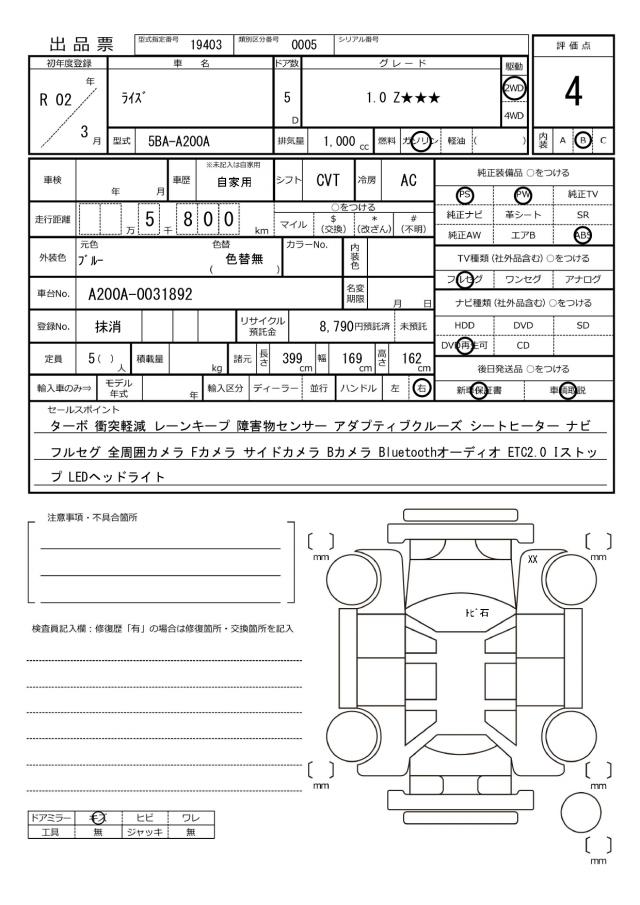 出品票 型式指定番号 19403 類別区分番号 0005 シリアル番号
評価点
4
初年度登録 車名 ドア数 グレード 駆動
R 02 年 ライズ 5 D 1.0 Z★★★ 2WD 4WD
3 月 型式 5BA-A200A 排気量 1,000 cc 燃料 ガソリン 軽油 ( ) 内装 A B C
車検 年 月 車歴 ※未記入は自家用 自家用 シフト CVT 冷房 AC
純正装備品 ○をつける
PS PW 純正TV
純正ナビ 革シート SR
純正AW エアB ABS
走行距離 万 5 千 8 0 0 km ○をつける マイル $ (交換) * (改ざん) # (不明)
外装色 元色 ブルー 色替 ( 色替無 ) カラーNo. 内装色
TV種類 (社外品含む) ○をつける
フルセグ ワンセグ アナログ
車台No. A200A-0031892 名変期限 月 日
ナビ種類 (社外品含む) ○をつける
HDD DVD SD
DVD再生可 CD
登録No. 抹消 リサイクル預託金 8,790円預託済 未預託
定員 5 ( ) 人 積載量 kg 諸元 長さ 399 cm 幅 169 cm 高さ 162 cm
後日発送品 ○をつける
新車保証書 車輌取説
輸入車のみ⇒ モデル年式 年 輸入区分 ディーラー 並行 ハンドル 左 右
セールスポイント
ターボ 衝突軽減 レーンキープ 障害物センサー アダプティブクルーズ シートヒーター ナビ
フルセグ 全周囲カメラ Fカメラ サイドカメラ Bカメラ Bluetoothオーディオ ETC2.0 Iストッ
プ LEDヘッドライト
注意事項・不具合箇所
検査員記入欄：修復歴「有」の場合は修復箇所・交換箇所を記入
mm
mm
XX
トビ石
mm
mm
mm
ドアミラー キズ ヒビ ワレ
工具 無 ジャッキ 無